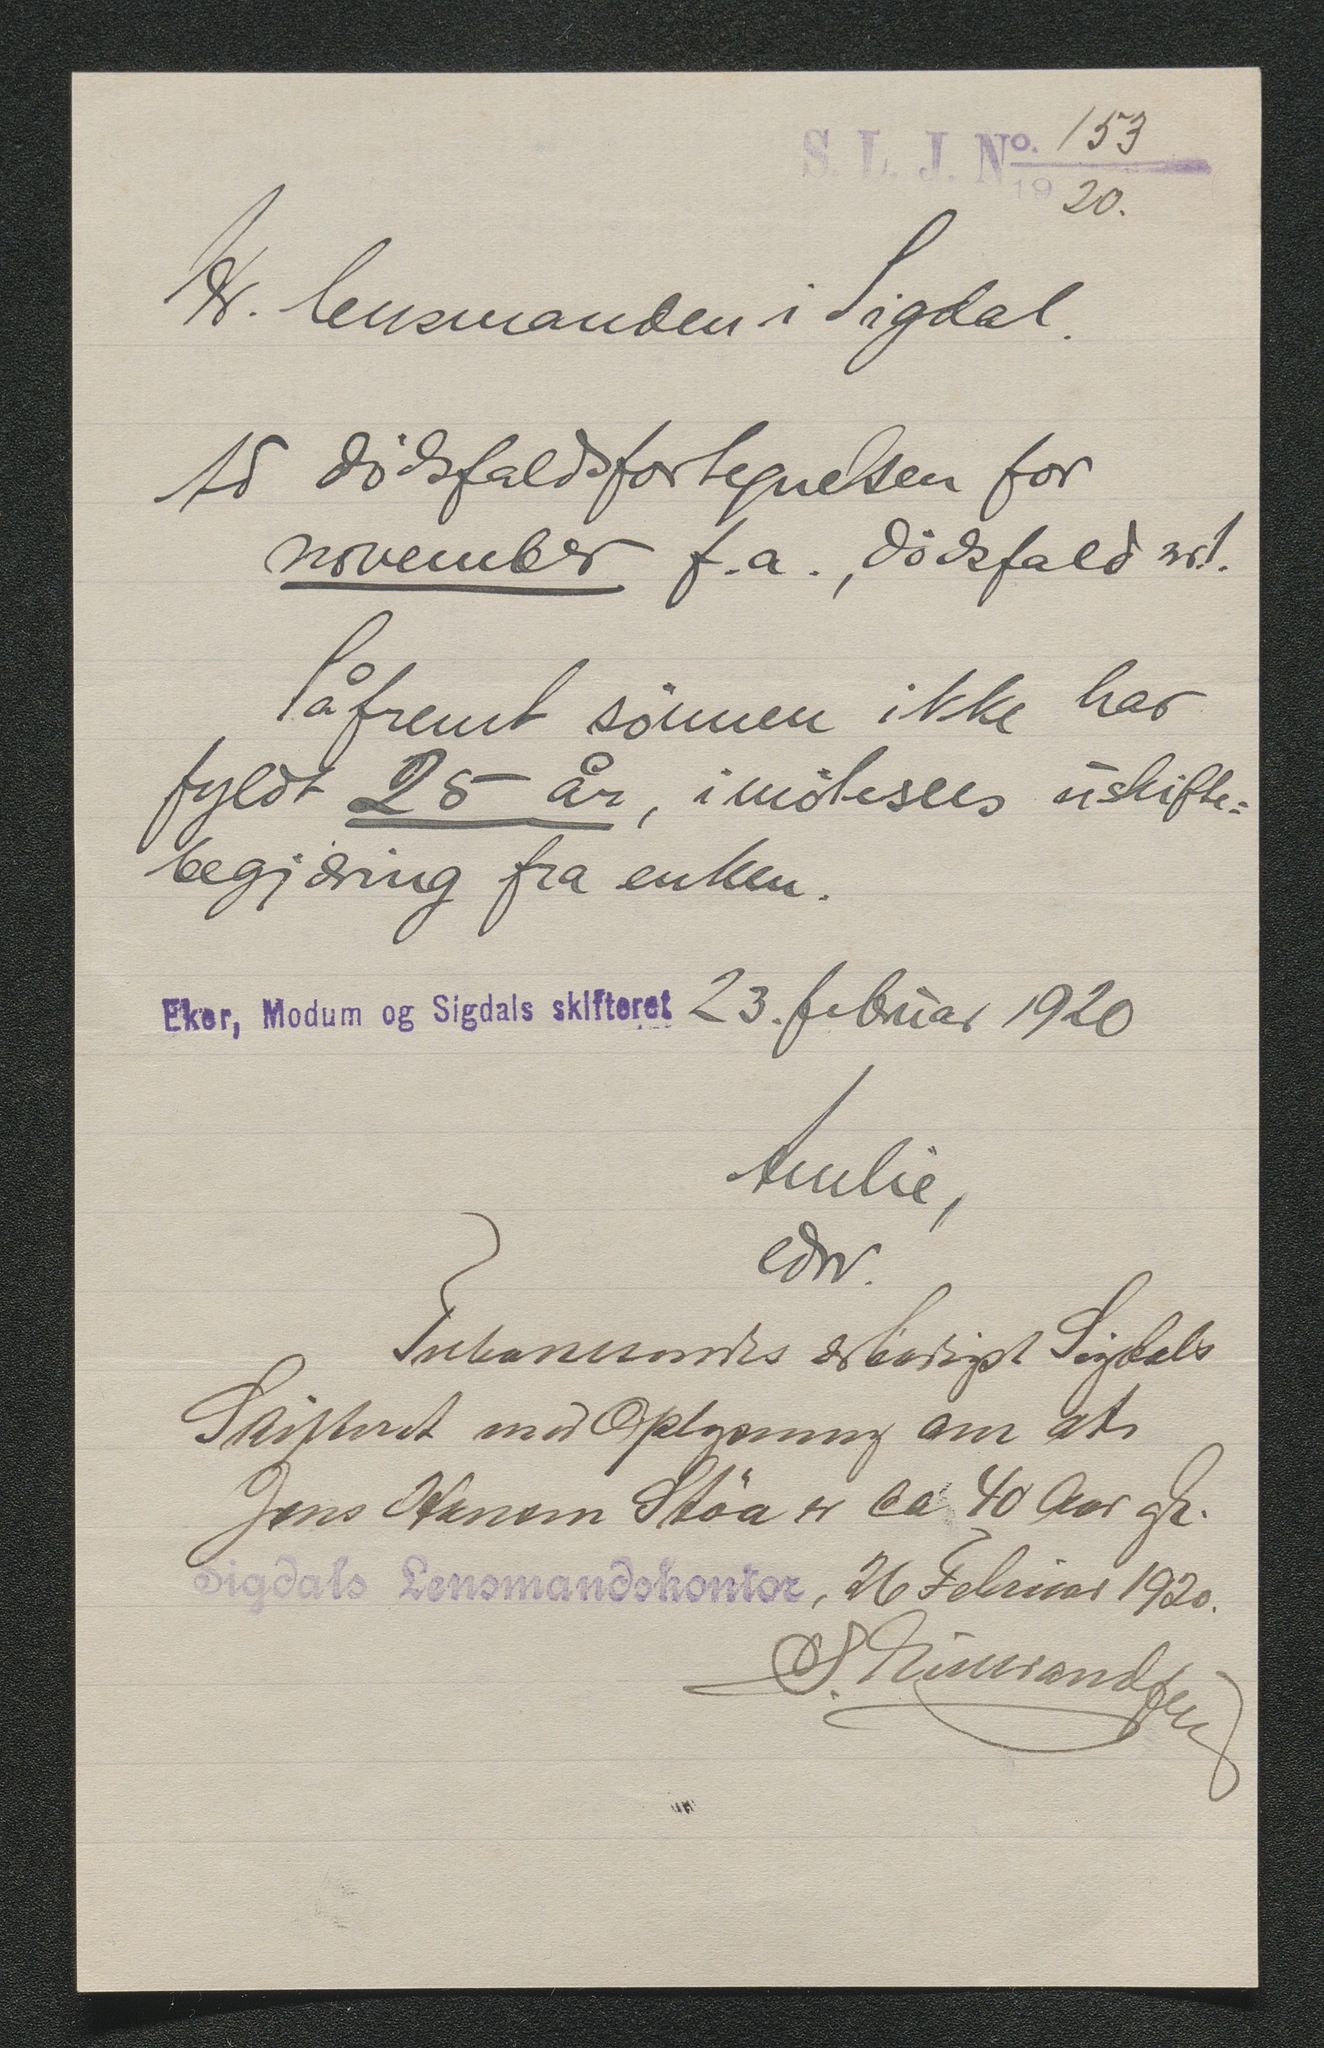 S. L. J. No. 153
1920.
Hr. lensmanden i Sigdal.
Ad dödsfaldsfortegnelsen for
november f.a., dödsfald nr. 1.
Såfremt sönnen ikke har
fyldt 25 år, imötesees uskifte=
begjæring fra enken.
Eker, Modum og Sigdals skifteret 23. februar 1920
edv.
Tilbakesendes ærbødigst Sigdals
Skifteret med Oplysning om at
Jens Hansen Stöa er ca 40 Aar gl.
Sigdals Lensmandskontor, 26 Februar 1920.